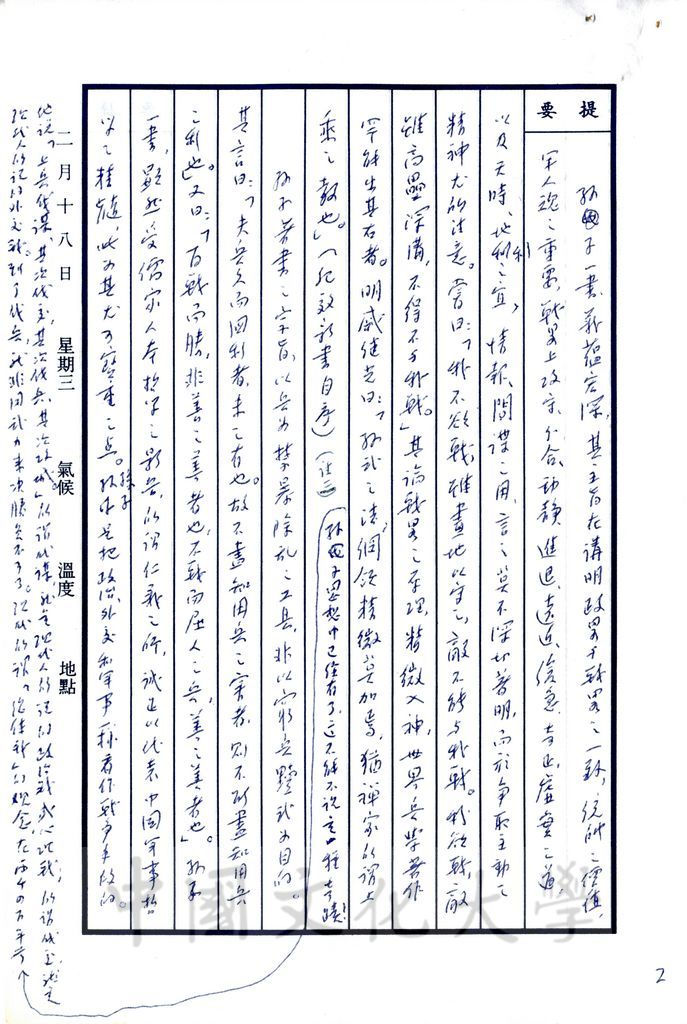 提要
孫子一書，義蘊宏深，其主旨在講明政畧與戰畧之一致，統帥之價值，
軍人魂之重要，戰畧上攻守、分合、動靜、進退、遠近、緩急、奇正、虛實之道，
以及天時、地利之宜，情報、間諜之用，言之莫不深切著明，而於爭取主動之
精神尤所注意。嘗曰：「我不欲戰，雖畫地以守之，敵不能與我戰。我欲戰，敵
雖高壘深溝，不得不與我戰。」其論戰畧之原理，精微入神，世界兵學著作
罕能出其右者。明戚繼光曰：「孫武之法，綱領精微莫加焉，猶禪家所謂上
乘之教也」。（紀效新書自序）（註三）
孫子著書之宗旨，以兵為禁暴除亂之工具，非以窮兵黷武為目的。
其言曰：「夫兵久而國利者，未之有也。故不盡知用兵之害者，則不能盡知用兵
之利也」。又曰：「百戰而勝，非善之善者也，不戰而屈人之兵，善之善者也」。孫子
一書，顯然受儒家人本哲學之影響，所謂仁義之師，誠足以代表中國軍事哲
學之精髓，此為其尤可寶重之點。孫子是把政治、外交和軍事一樣看作戰爭手段的。
二月十八日 星期三 氣候 溫度 地點
他說：「上兵伐謀，其次伐交，其次伐兵，其次攻城。」所謂伐謀，就是現代人所謂的政治戰或心理戰，所謂伐交，就是
現代人所說的外交戰，到了伐兵，就非用武力來決勝負不可了。現代所謂「總體戰」的觀念，在兩千四百年前
孫子思想中已經有了，這不能不說是一種奇蹟
中國文化大學
2